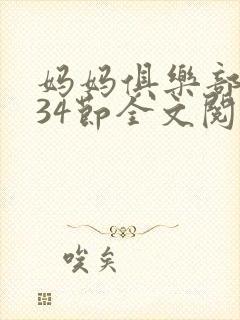 妈妈俱樂部
34節全文閱
唉矣